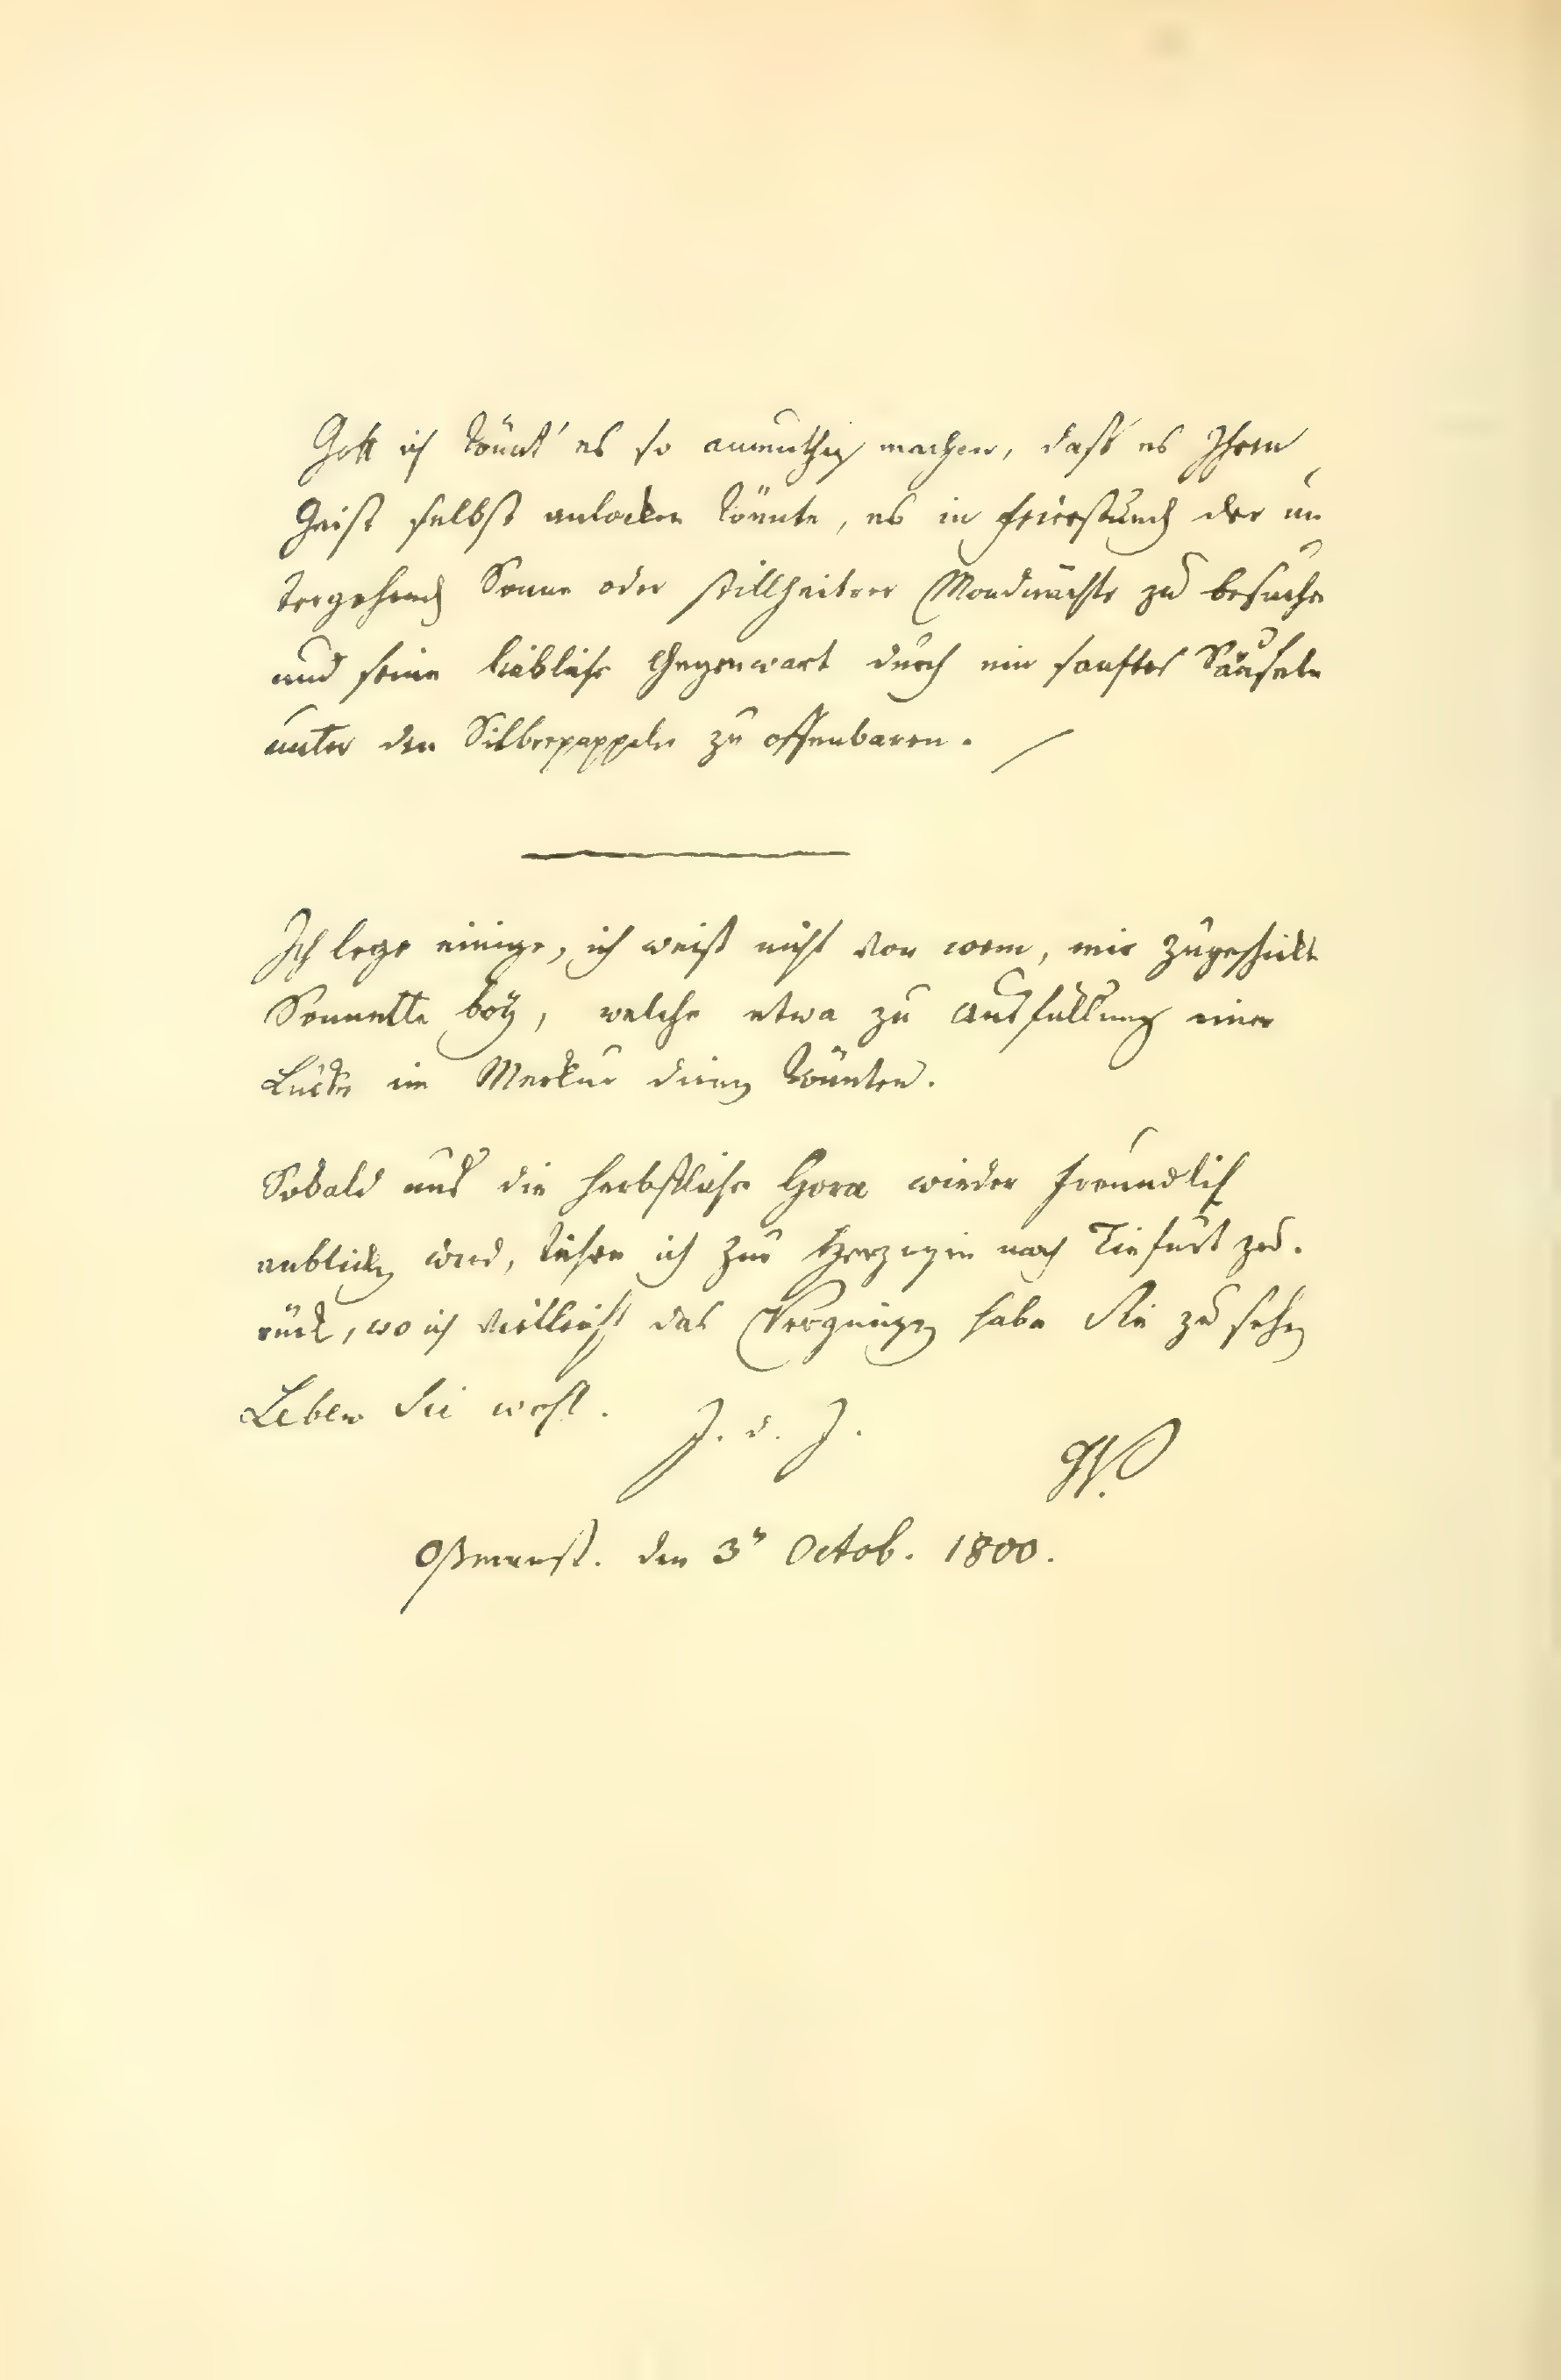 Gott ich könnt' es so anmuthig machen, daß es Ihren
Geist selbst anlocken könnte, es in Feierstunden der un
tergehenden Sonne oder stillheitrer Mondnächte zu besuchen
und seine liebliche Gegenwart durch ein sanftes Säuseln
unter den Silberpappeln zu offenbaren.
Ich lege einige, ich weiß nicht von wem, mir zugeschickte
Sonnette bey, welche etwa zu Ausfüllung einer
Lücke im Merkur dienen könnten.
Sobald uns die herbstliche Hora wieder freundlich
anblicken wird, kehre ich zur Herzogin nach Tiefurt zu-
rück, wo ich vielleicht das Vergnügen habe Sie zu sehen
Leben Sie wohl. W.
Oßmanst. den 3n Octob. 1800.